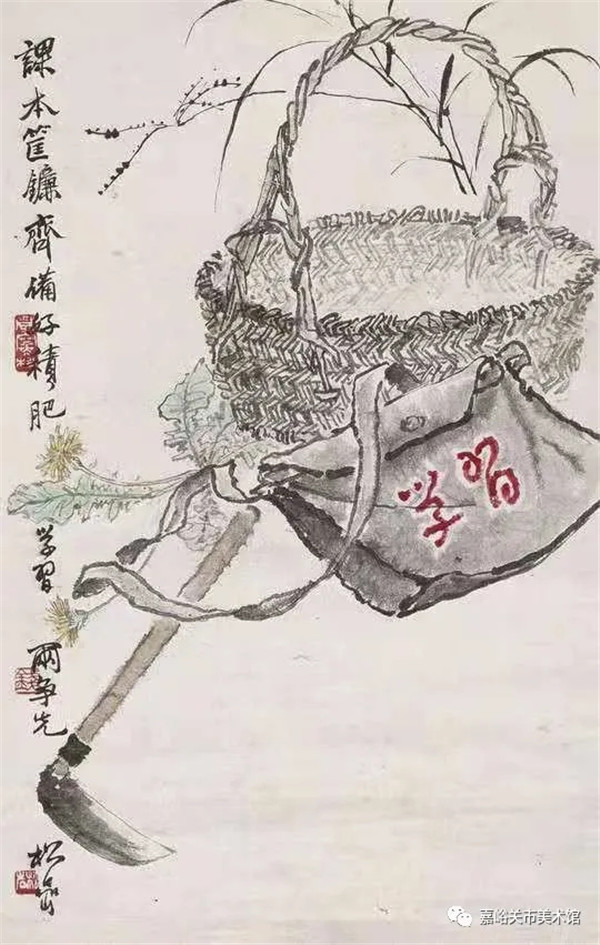 課本筐鐮齊備好積肥
学習
兩争先
松嵒
学習
嘉峪关市美术馆